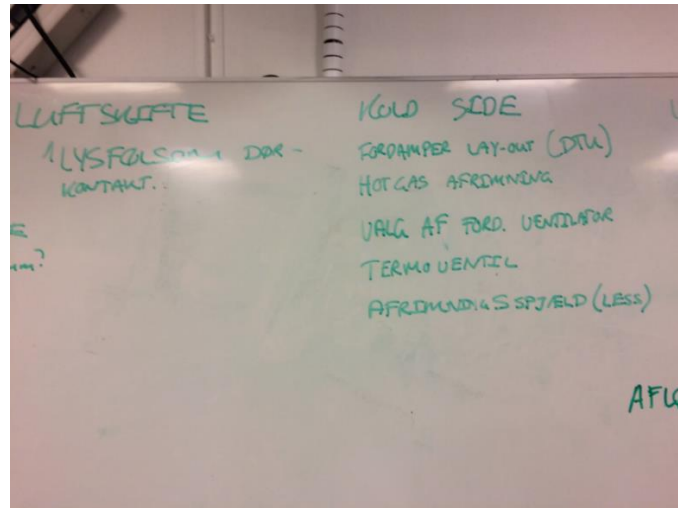 LUFTSKIFTE
1 LYSFØLSOM DØR-
KONTAKT..
KOLD SIDE
FORDAMPER LAY-OUT (DTU)
HOTGAS AFRIMNING
VALG AF FORD. VENTILATOR
TERMOVENTIL
AFRIMNINGSSPJÆLD (LESS)